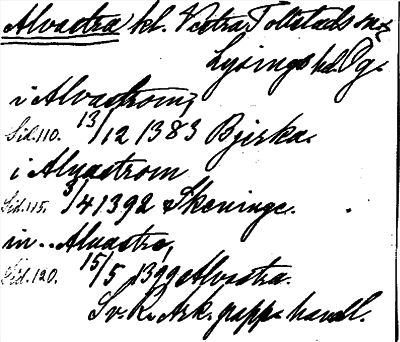 Alvastra kl. Vestra Tollstads sn
Lysings hd Ög.
i Alvastrom,
Sid. 110. 13/12 1383 Bjerka.
i Alvastrom
Sid. 115. 3/4 1392 Skeninge.
in .. Alvastra,
Sid. 120. 15/5 1399 Alvastra.
Sv. R. Ark. papp. handl.